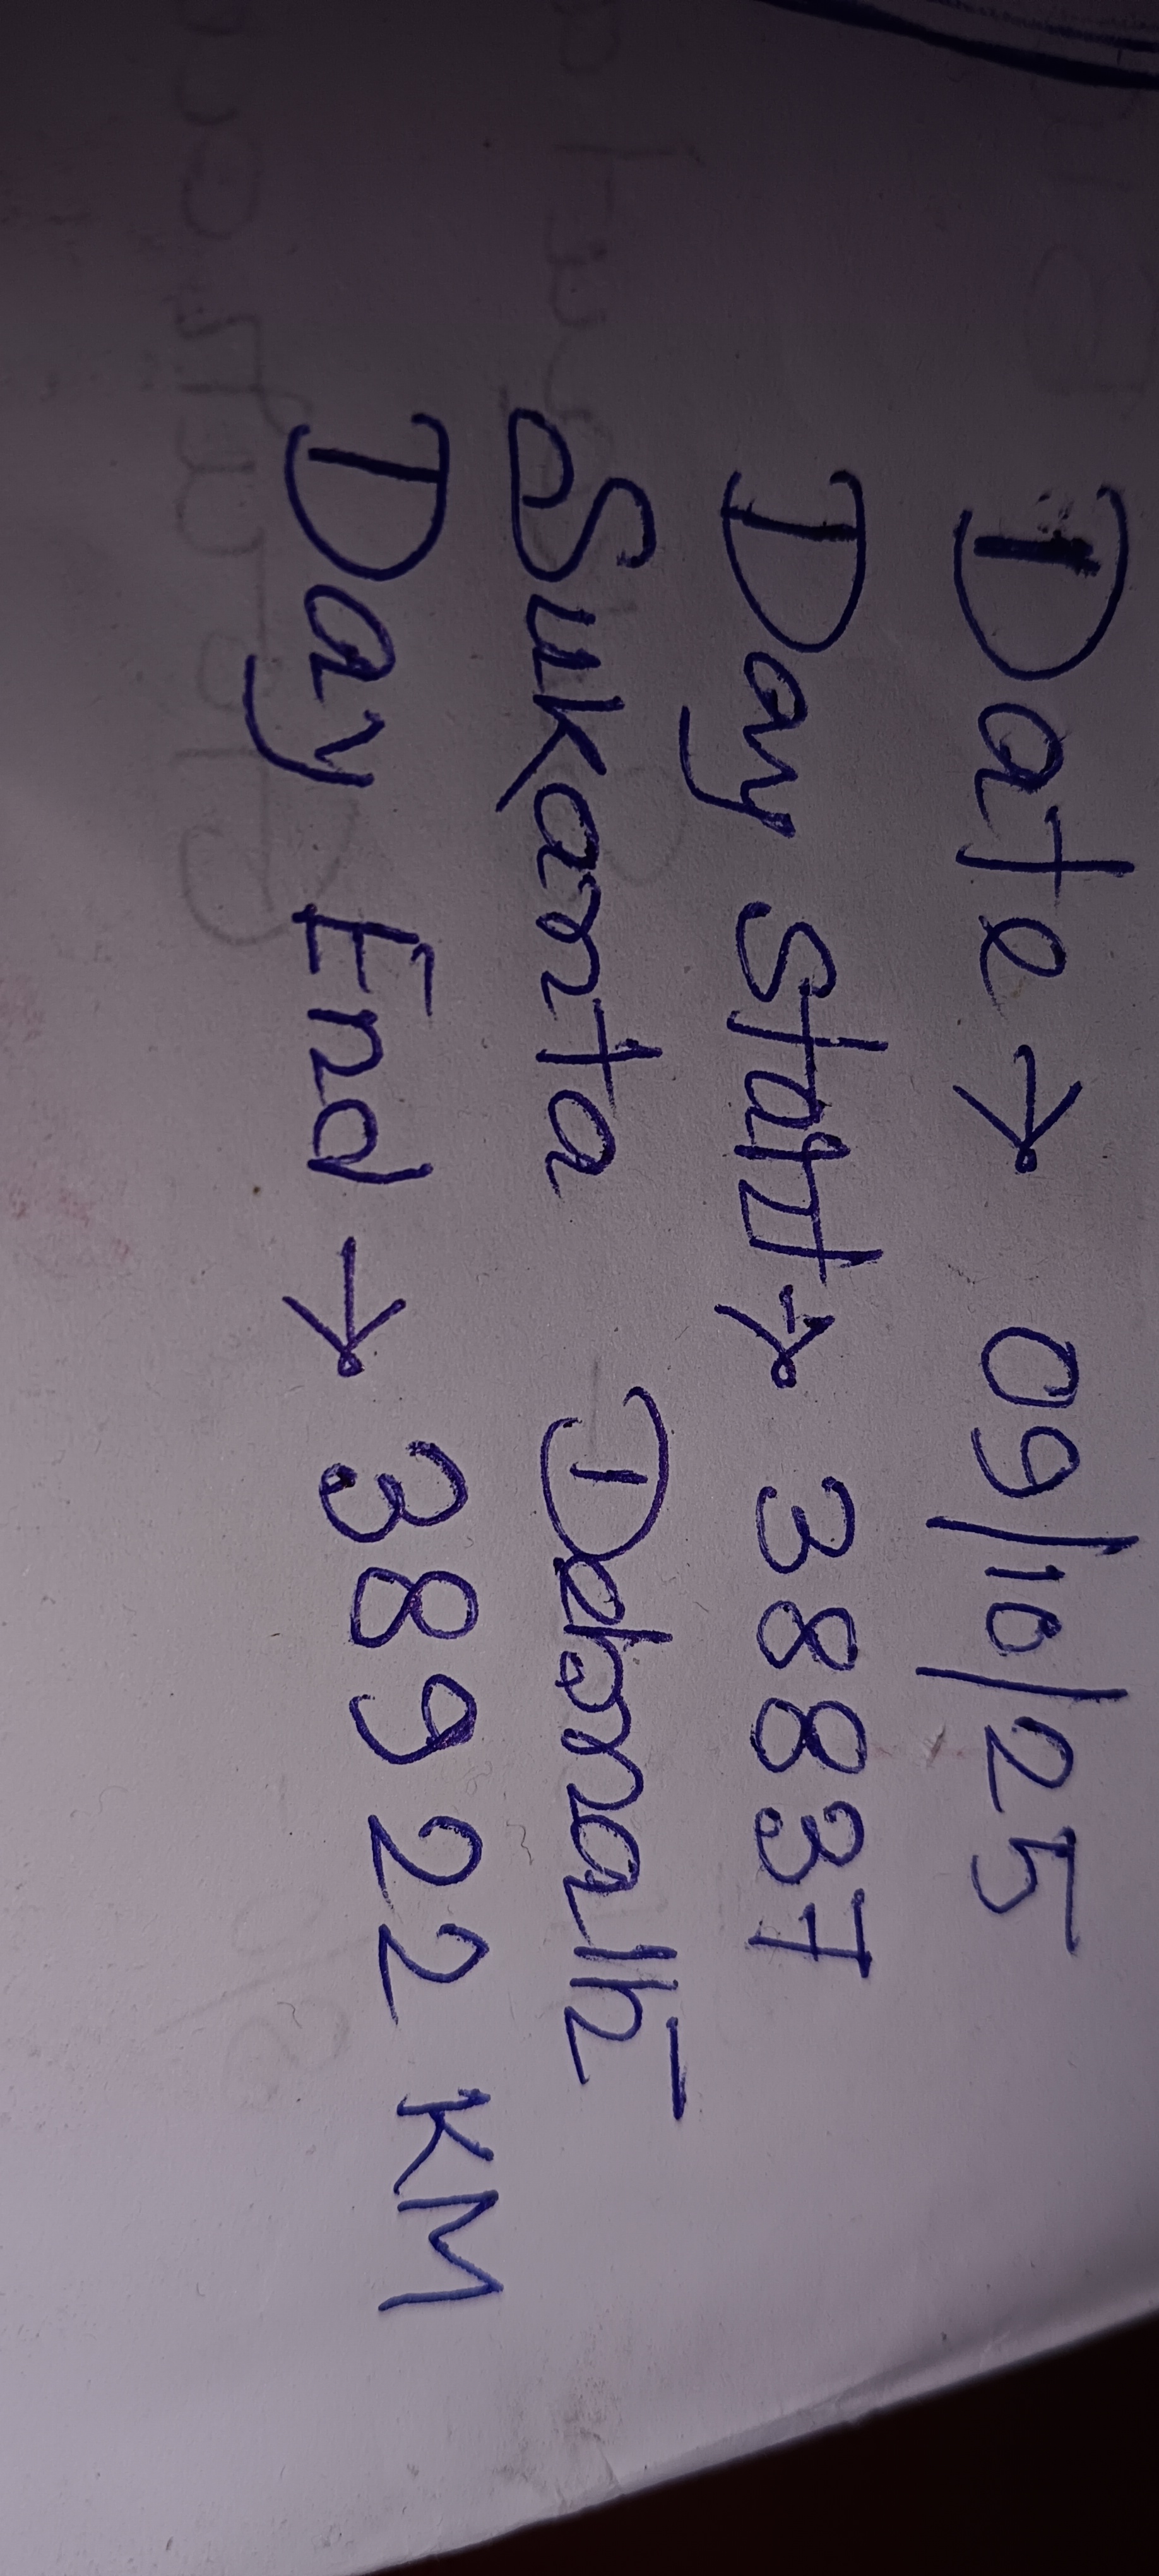 Date → 09/10/25
Day Start → 38837
Sukanta Debnath
Day End → 38922 KM